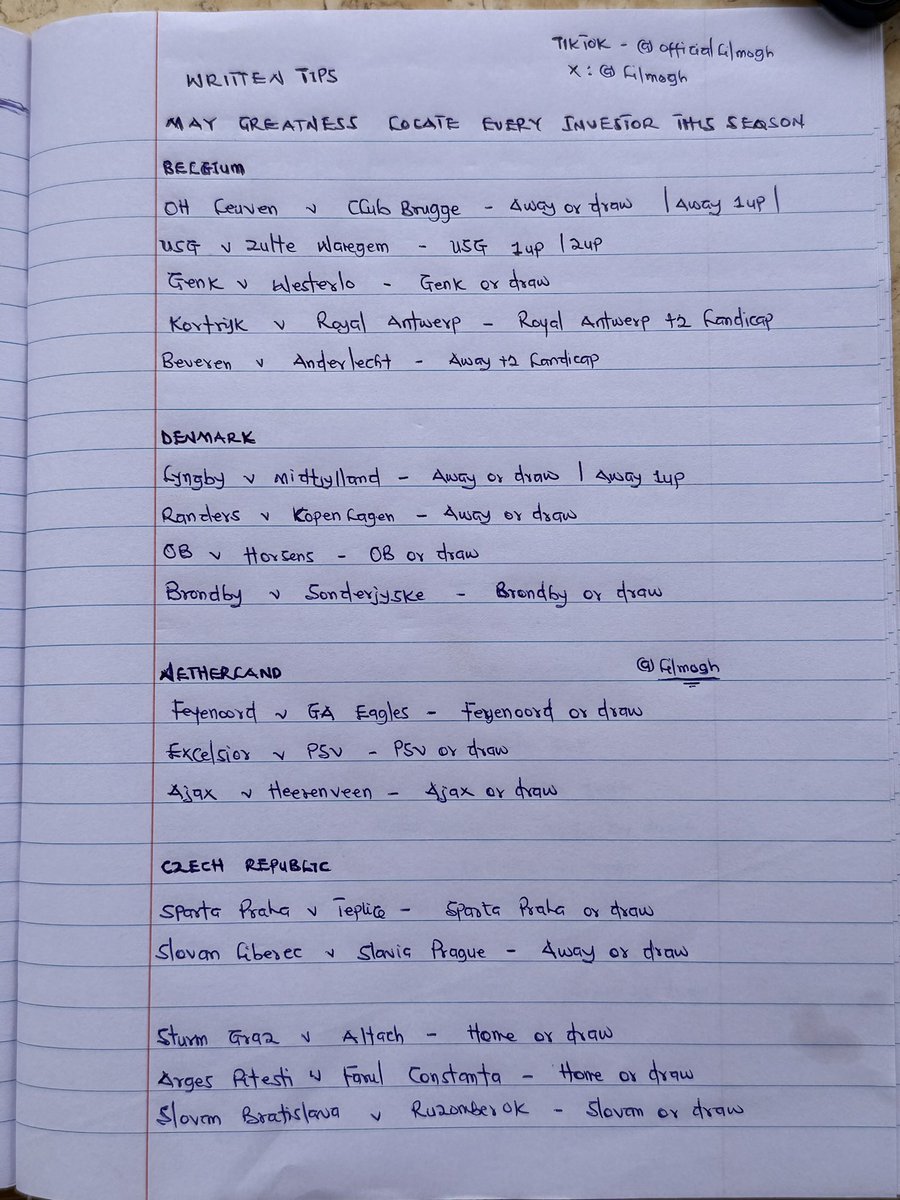 TIKTOK - @officialfilmogh
WRITTEN TIPS
X: @filmogh
MAY GREATNESS LOCATE EVERY INVESTOR THIS SEASON
BELGIUM
OH Leuven v Club Brugge - Away or draw | Away 1up |
USG v Zulte Waregem - USG 1up | 2up
Genk v Westerlo - Genk or draw
Kortrijk v Royal Antwerp - Royal Antwerp +2 handicap
Beveren v Anderlecht - Away +2 handicap
DENMARK
Lyngby v Midtjylland - Away or draw | Away 1up
Randers v Kopenhagen - Away or draw
OB v Horsens - OB or draw
Brondby v Sonderjyske - Brondby or draw
NETHERLAND
@filmogh
Feyenoord v GA Eagles - Feyenoord or draw
Excelsior v PSV - PSV or draw
Ajax v Heerenveen - Ajax or draw
CZECH REPUBLIC
Sparta Praha v Teplice - Sparta Praha or draw
Slovan Liberec v Slavia Prague - Away or draw
Sturm Graz v Altach - Home or draw
Arges Pitesti v Farul Constanta - Home or draw
Slovan Bratislava v Ruzomberok - Slovan or draw